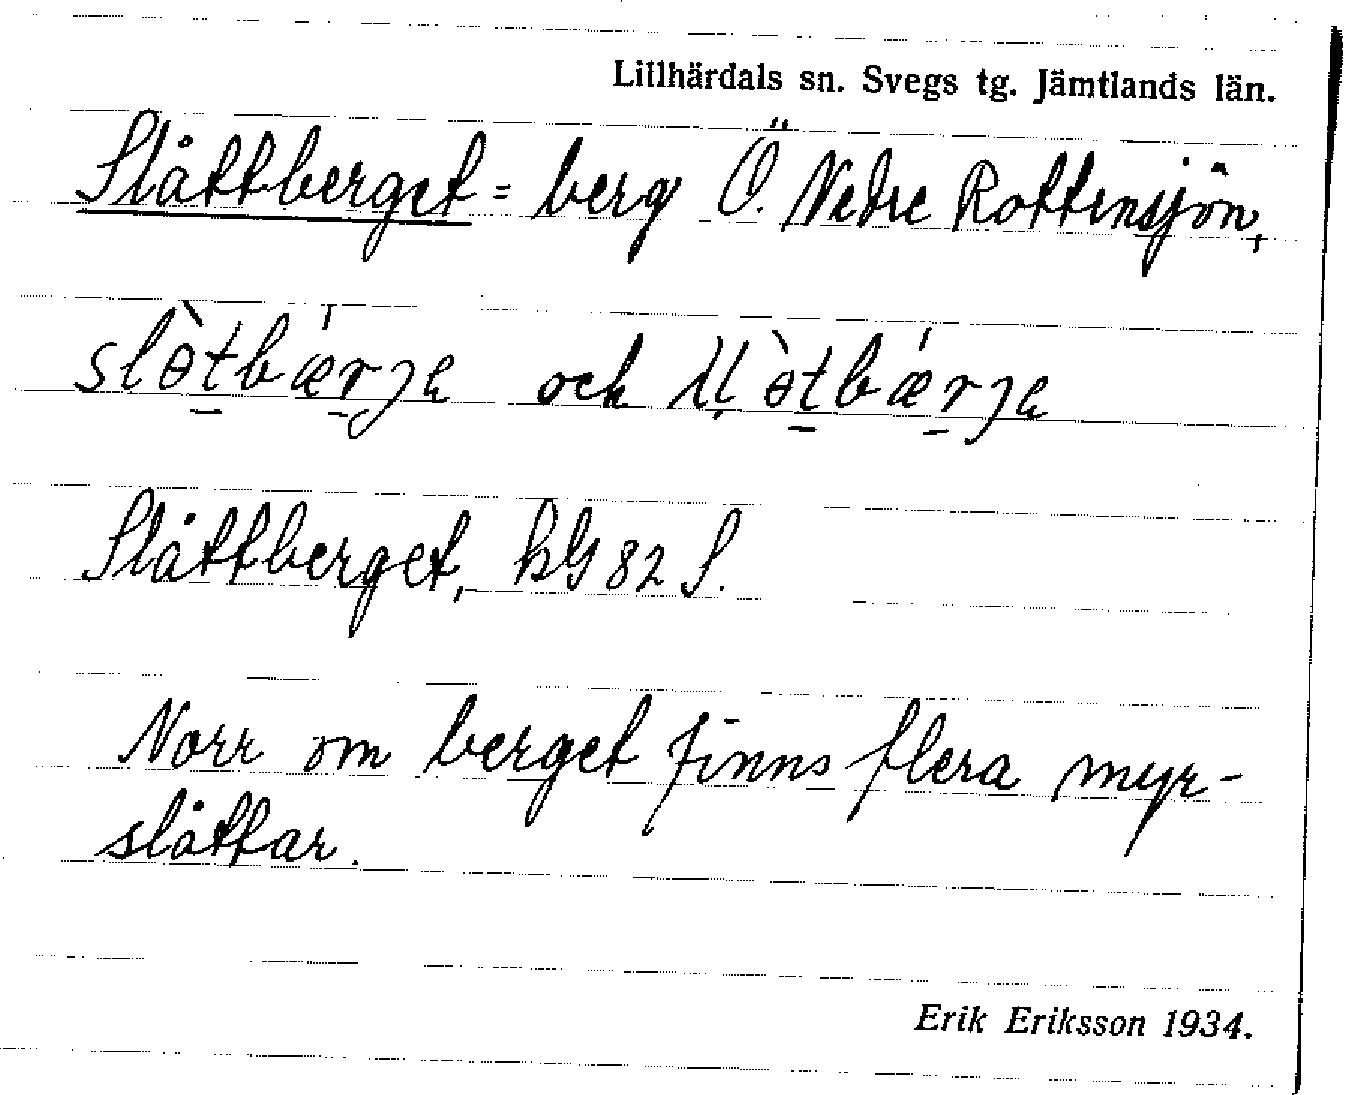 Lillhärdals sn. Svegs tg. Jämtlands län.
Slåttberget = berg Ö. Nedre Rottensjön,
och
Slåttberget, kG 82 S.
Norr om berget finns flera myr-
slåttar.
Erik Eriksson 1934.